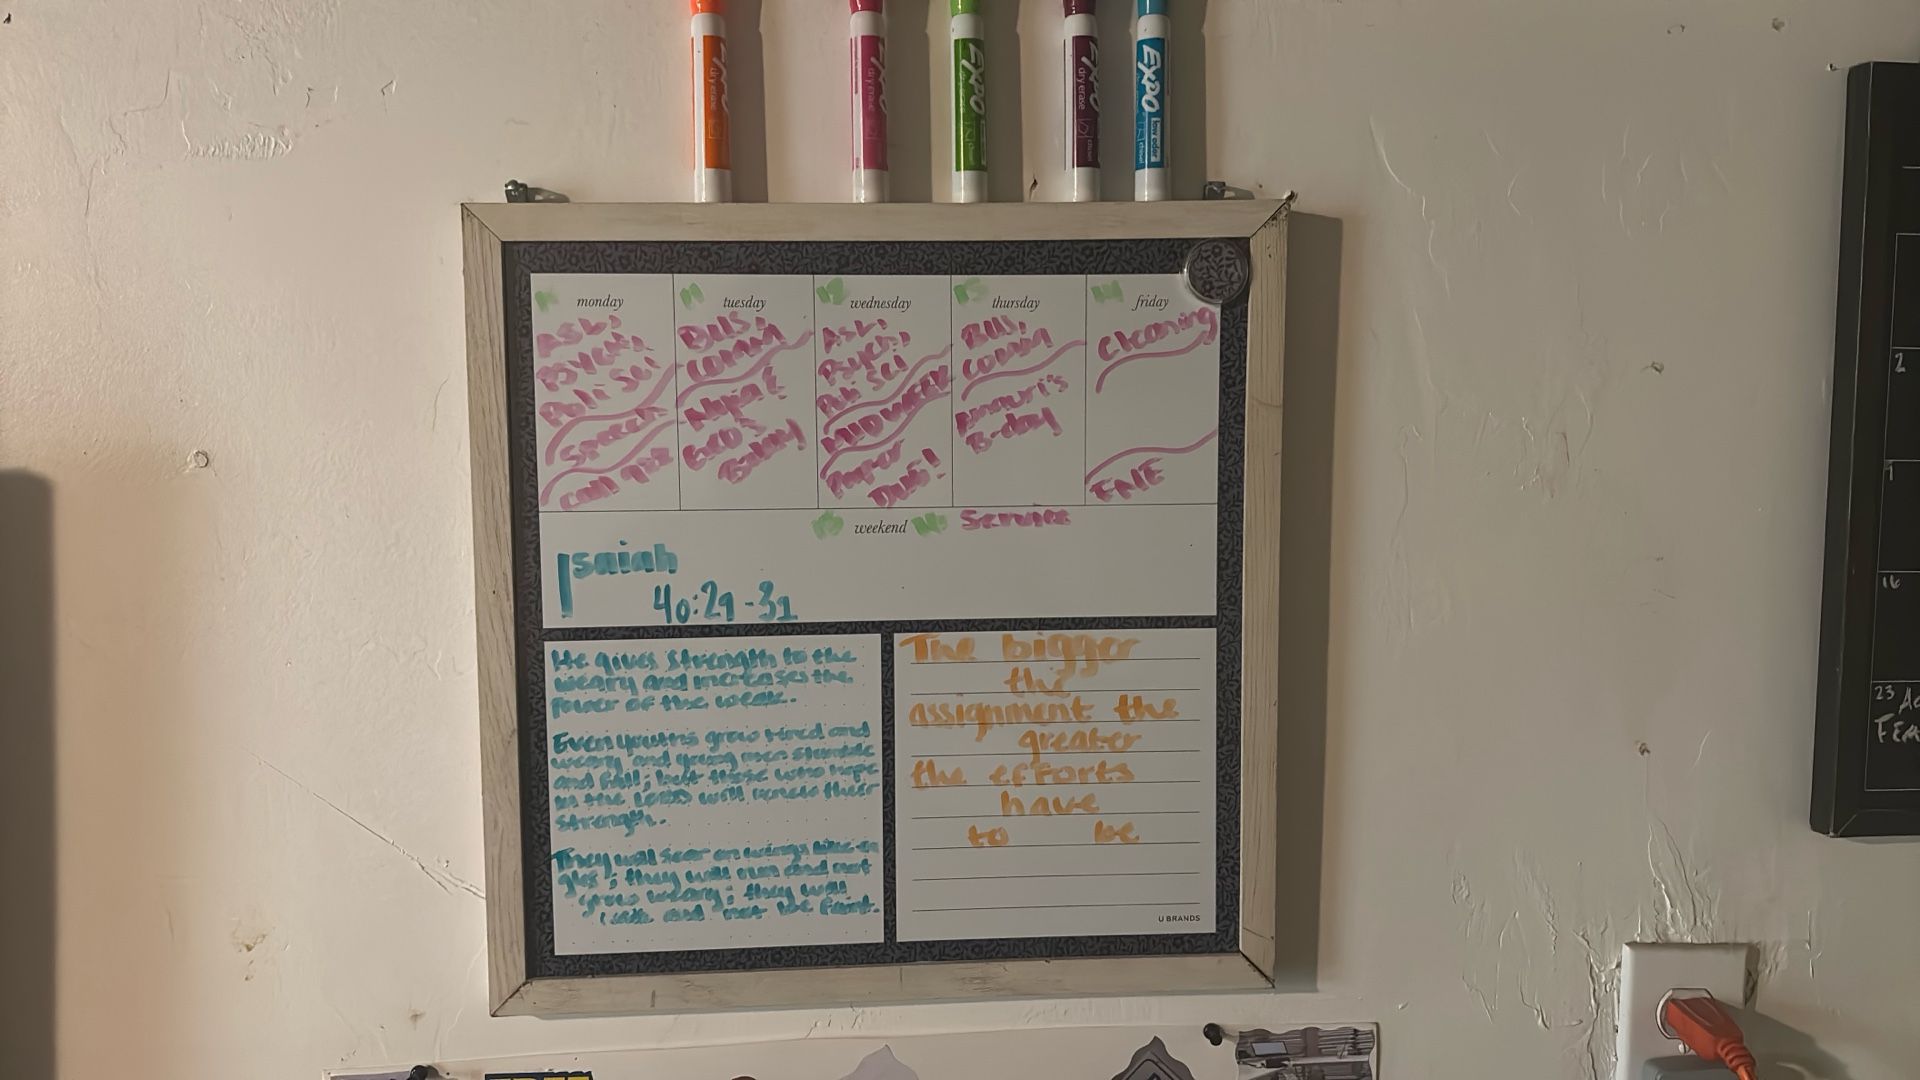 EXPO
dry erase
EXPO
dry erase
EXPO
EXPO
dry erase
EXPO
monday
tuesday
12 wednesday
thursday
14 friday
Psych,
Poli Sci
Speech
Bus,
comm
B-day
Psych,
Poli Sci
MIDWEEK
Paper
Due!
Bus,
comm
Amauri's
B-day
Cleaning
FNE
weekend
Service
Isaiah
40:29-31
He gives strength to the
weary and increases the
power of the weak.
Even youths grow tired and
weary, and young men stumble
and fall; but those who hope
in the LORD will renew their
strength.
They will soar on wings like ea
gles; they will run and not
grow weary; they will
walk and not be faint.
The bigger
the
assignment the
greater
the efforts
have
to be
U BRANDS
2
16
23